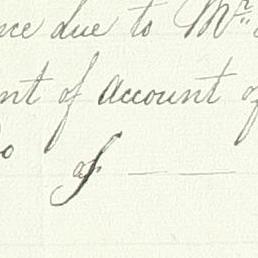 nce due to Mr.
nt of account of
o of